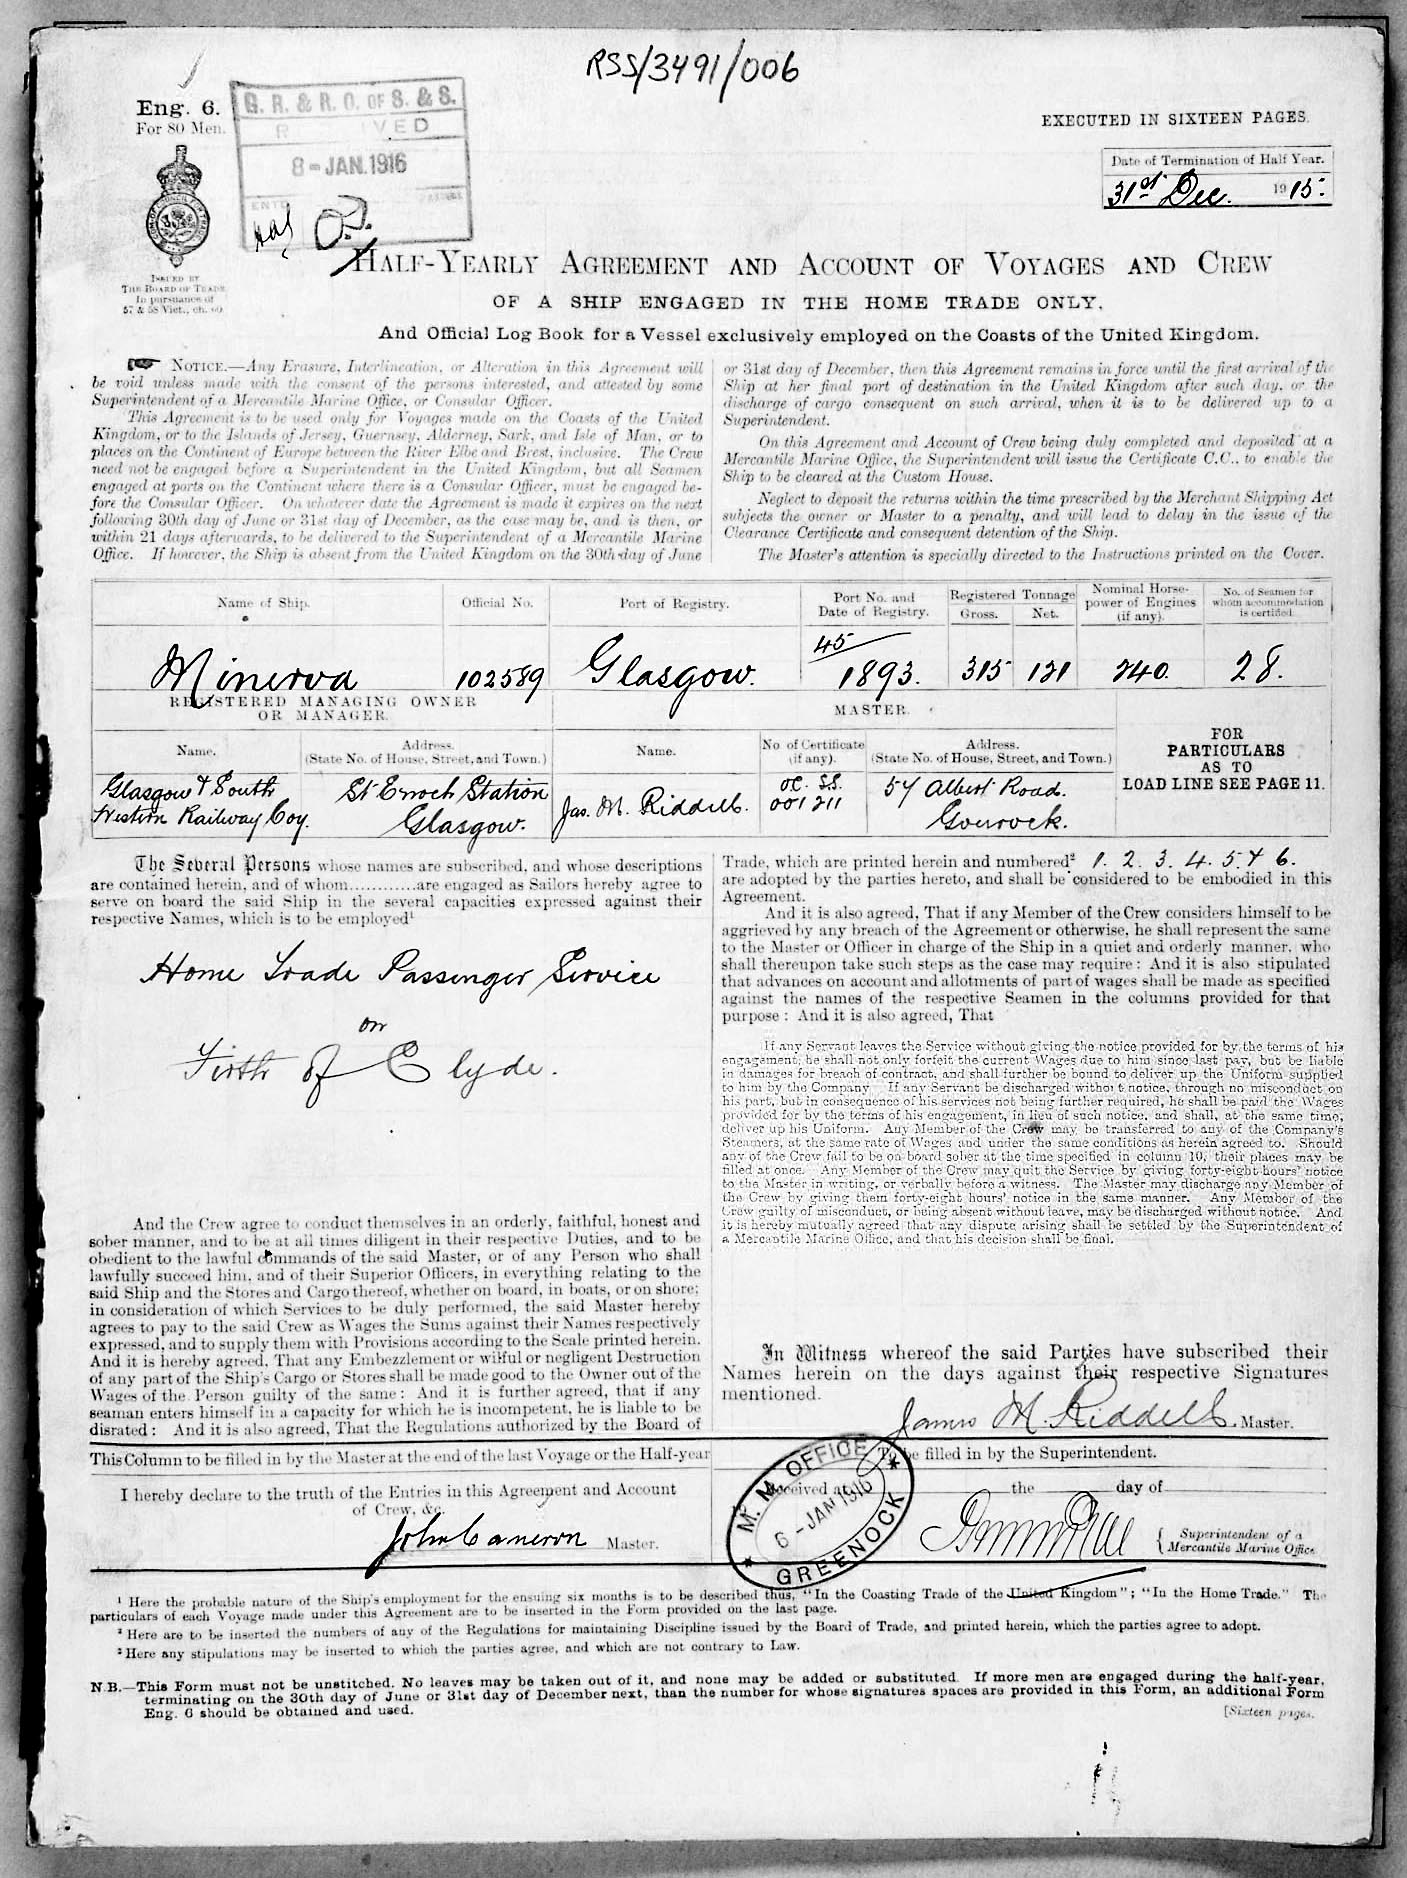 RSS/3491/006
Eng. 6.
For 80 Men.
G. R. & R. O. OF S. & S.
RECEIVED
8-JAN.1916
EXECUTED IN SIXTEEN PAGES.
Date of Termination of Half Year.
31st Dec. 1915.
ISSUED BY
THE BOARD OF TRADE
In pursuance of
57 & 58 Vict., ch. 60.
HALF-YEARLY AGREEMENT AND ACCOUNT OF VOYAGES AND CREW
OF A SHIP ENGAGED IN THE HOME TRADE ONLY,
And Official Log Book for a Vessel exclusively employed on the Coasts of the United Kingdom.
NOTICE.—Any Erasure, Interlineation, or Alteration in this Agreement will
be void unless made with the consent of the persons interested, and attested by some
Superintendent of a Mercantile Marine Office, or Consular Officer.
This Agreement is to be used only for Voyages made on the Coasts of the United
Kingdom, or to the Islands of Jersey, Guernsey, Alderney, Sark, and Isle of Man, or to
places on the Continent of Europe between the River Elbe and Brest, inclusive. The Crew
need not be engaged before a Superintendent in the United Kingdom, but all Seamen
engaged at ports on the Continent where there is a Consular Officer, must be engaged be-
fore the Consular Officer. On whatever date the Agreement is made it expires on the next
following 30th day of June or 31st day of December, as the case may be, and is then, or
within 21 days afterwards, to be delivered to the Superintendent of a Mercantile Marine
Office. If however, the Ship is absent from the United Kingdom on the 30th day of June
or 31st day of December, then this Agreement remains in force until the first arrival of the
Ship at her final port of destination in the United Kingdom after such day, or the
discharge of cargo consequent on such arrival, when it is to be delivered up to a
Superintendent.
On this Agreement and Account of Crew being duly completed and deposited at a
Mercantile Marine Office, the Superintendent will issue the Certificate C.C., to enable the
Ship to be cleared at the Custom House.
Neglect to deposit the returns within the time prescribed by the Merchant Shipping Act
subjects the owner or Master to a penalty, and will lead to delay in the issue of the
Clearance Certificate and consequent detention of the Ship.
The Master's attention is specially directed to the Instructions printed on the Cover.
Name of Ship. Official No. Port of Registry. Port No. and Date of Registry. Registered Tonnage Gross. Net. Nominal Horse-power of Engines (if any). No. of Seamen for whom accommodation is certified.
Minerva 102589 Glasgow. 45/1893. 315 121 240. 28.
REGISTERED MANAGING OWNER
OR MANAGER.
MASTER.
Name. Address. (State No. of House, Street, and Town.) Name. No of Certificate (if any). Address. (State No. of House, Street, and Town.)
FOR
PARTICULARS
AS TO
LOAD LINE SEE PAGE 11.
Glasgow & South
Western Railway Coy.
St Enoch Station
Glasgow.
Jas. M. Riddell.
O.C. S.S.
001211
54 Albert Road.
Gourock.
The Several Persons whose names are subscribed, and whose descriptions
are contained herein, and of whom............are engaged as Sailors hereby agree to
serve on board the said Ship in the several capacities expressed against their
respective Names, which is to be employed¹
Home Trade Passenger Service
on
Firth of Clyde.
And the Crew agree to conduct themselves in an orderly, faithful, honest and
sober manner, and to be at all times diligent in their respective Duties, and to be
obedient to the lawful commands of the said Master, or of any Person who shall
lawfully succeed him, and of their Superior Officers, in everything relating to the
said Ship and the Stores and Cargo thereof, whether on board, in boats, or on shore;
in consideration of which Services to be duly performed, the said Master hereby
agrees to pay to the said Crew as Wages the Sums against their Names respectively
expressed, and to supply them with Provisions according to the Scale printed herein.
And it is hereby agreed, That any Embezzlement or wilful or negligent Destruction
of any part of the Ship's Cargo or Stores shall be made good to the Owner out of the
Wages of the Person guilty of the same: And it is further agreed, that if any
seaman enters himself in a capacity for which he is incompetent, he is liable to be
disrated: And it is also agreed, That the Regulations authorized by the Board of
Trade, which are printed herein and numbered² 1. 2. 3. 4. 5. & 6.
are adopted by the parties hereto, and shall be considered to be embodied in this
Agreement.
And it is also agreed, That if any Member of the Crew considers himself to be
aggrieved by any breach of the Agreement or otherwise, he shall represent the same
to the Master or Officer in charge of the Ship in a quiet and orderly manner, who
shall thereupon take such steps as the case may require: And it is also stipulated
that advances on account and allotments of part of wages shall be made as specified
against the names of the respective Seamen in the columns provided for that
purpose: And it is also agreed, That
If any Servant leaves the Service without giving the notice provided for by the terms of his
engagement, he shall not only forfeit the current Wages due to him since last pay, but be liable
in damages for breach of contract, and shall further be bound to deliver up the Uniform supplied
to him by the Company. If any Servant be discharged without notice, through no misconduct on
his part, but in consequence of his services not being further required, he shall be paid the Wages
provided for by the terms of his engagement, in lieu of such notice, and shall, at the same time,
deliver up his Uniform. Any Member of the Crew may be transferred to any of the Company's
Steamers, at the same rate of Wages and under the same conditions as herein agreed to. Should
any of the Crew fail to be on board sober at the time specified in column 10, their places may be
filled at once. Any Member of the Crew may quit the Service by giving forty-eight hours' notice
to the Master in writing, or verbally before a witness. The Master may discharge any Member of
the Crew by giving them forty-eight hours' notice in the same manner. Any Member of the
Crew guilty of misconduct, or being absent without leave, may be discharged without notice. And
it is hereby mutually agreed that any dispute arising shall be settled by the Superintendent of
a Mercantile Marine Office, and that his decision shall be final.
In Witness whereof the said Parties have subscribed their
Names herein on the days against their respective Signatures
mentioned.
James M. Riddell. Master.
This Column to be filled in by the Master at the end of the last Voyage or the Half-year
I hereby declare to the truth of the Entries in this Agreement and Account
of Crew, &c.
John Cameron Master.
To be filled in by the Superintendent.
Received at the day of
M. M. OFFICE
6-JAN 1916
GREENOCK
Superintendent of a
Mercantile Marine Office.
¹ Here the probable nature of the Ship's employment for the ensuing six months is to be described thus, "In the Coasting Trade of the United Kingdom"; "In the Home Trade." The
particulars of each Voyage made under this Agreement are to be inserted in the Form provided on the last page.
² Here are to be inserted the numbers of any of the Regulations for maintaining Discipline issued by the Board of Trade, and printed herein, which the parties agree to adopt.
³ Here any stipulations may be inserted to which the parties agree, and which are not contrary to Law.
N.B.—This Form must not be unstitched. No leaves may be taken out of it, and none may be added or substituted. If more men are engaged during the half-year,
terminating on the 30th day of June or 31st day of December next, than the number for whose signatures spaces are provided in this Form, an additional Form
Eng. 6 should be obtained and used.
[Sixteen pages.